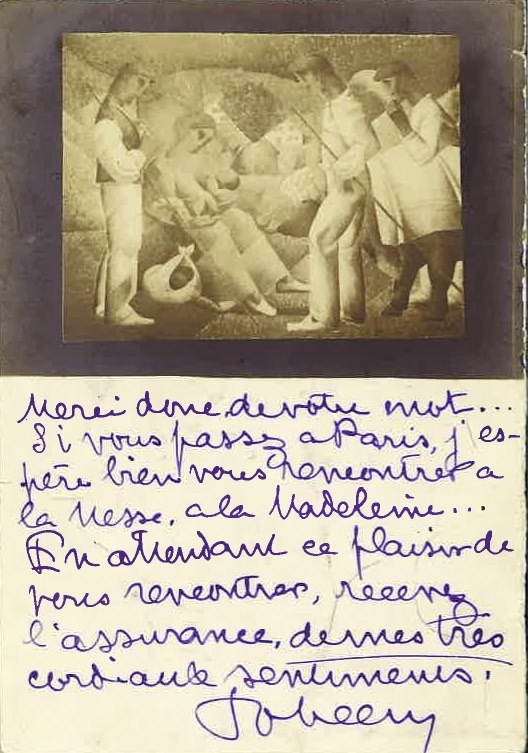 Merci donc, de votre mot...
Si vous passez a Paris, j'es-
père bien vous rencontrer a
la Messe, a la Madeleine...
En attendant ce plaisir de
vous rencontrer, recevez
l'assurance, de mes très
cordiaule sentiments.